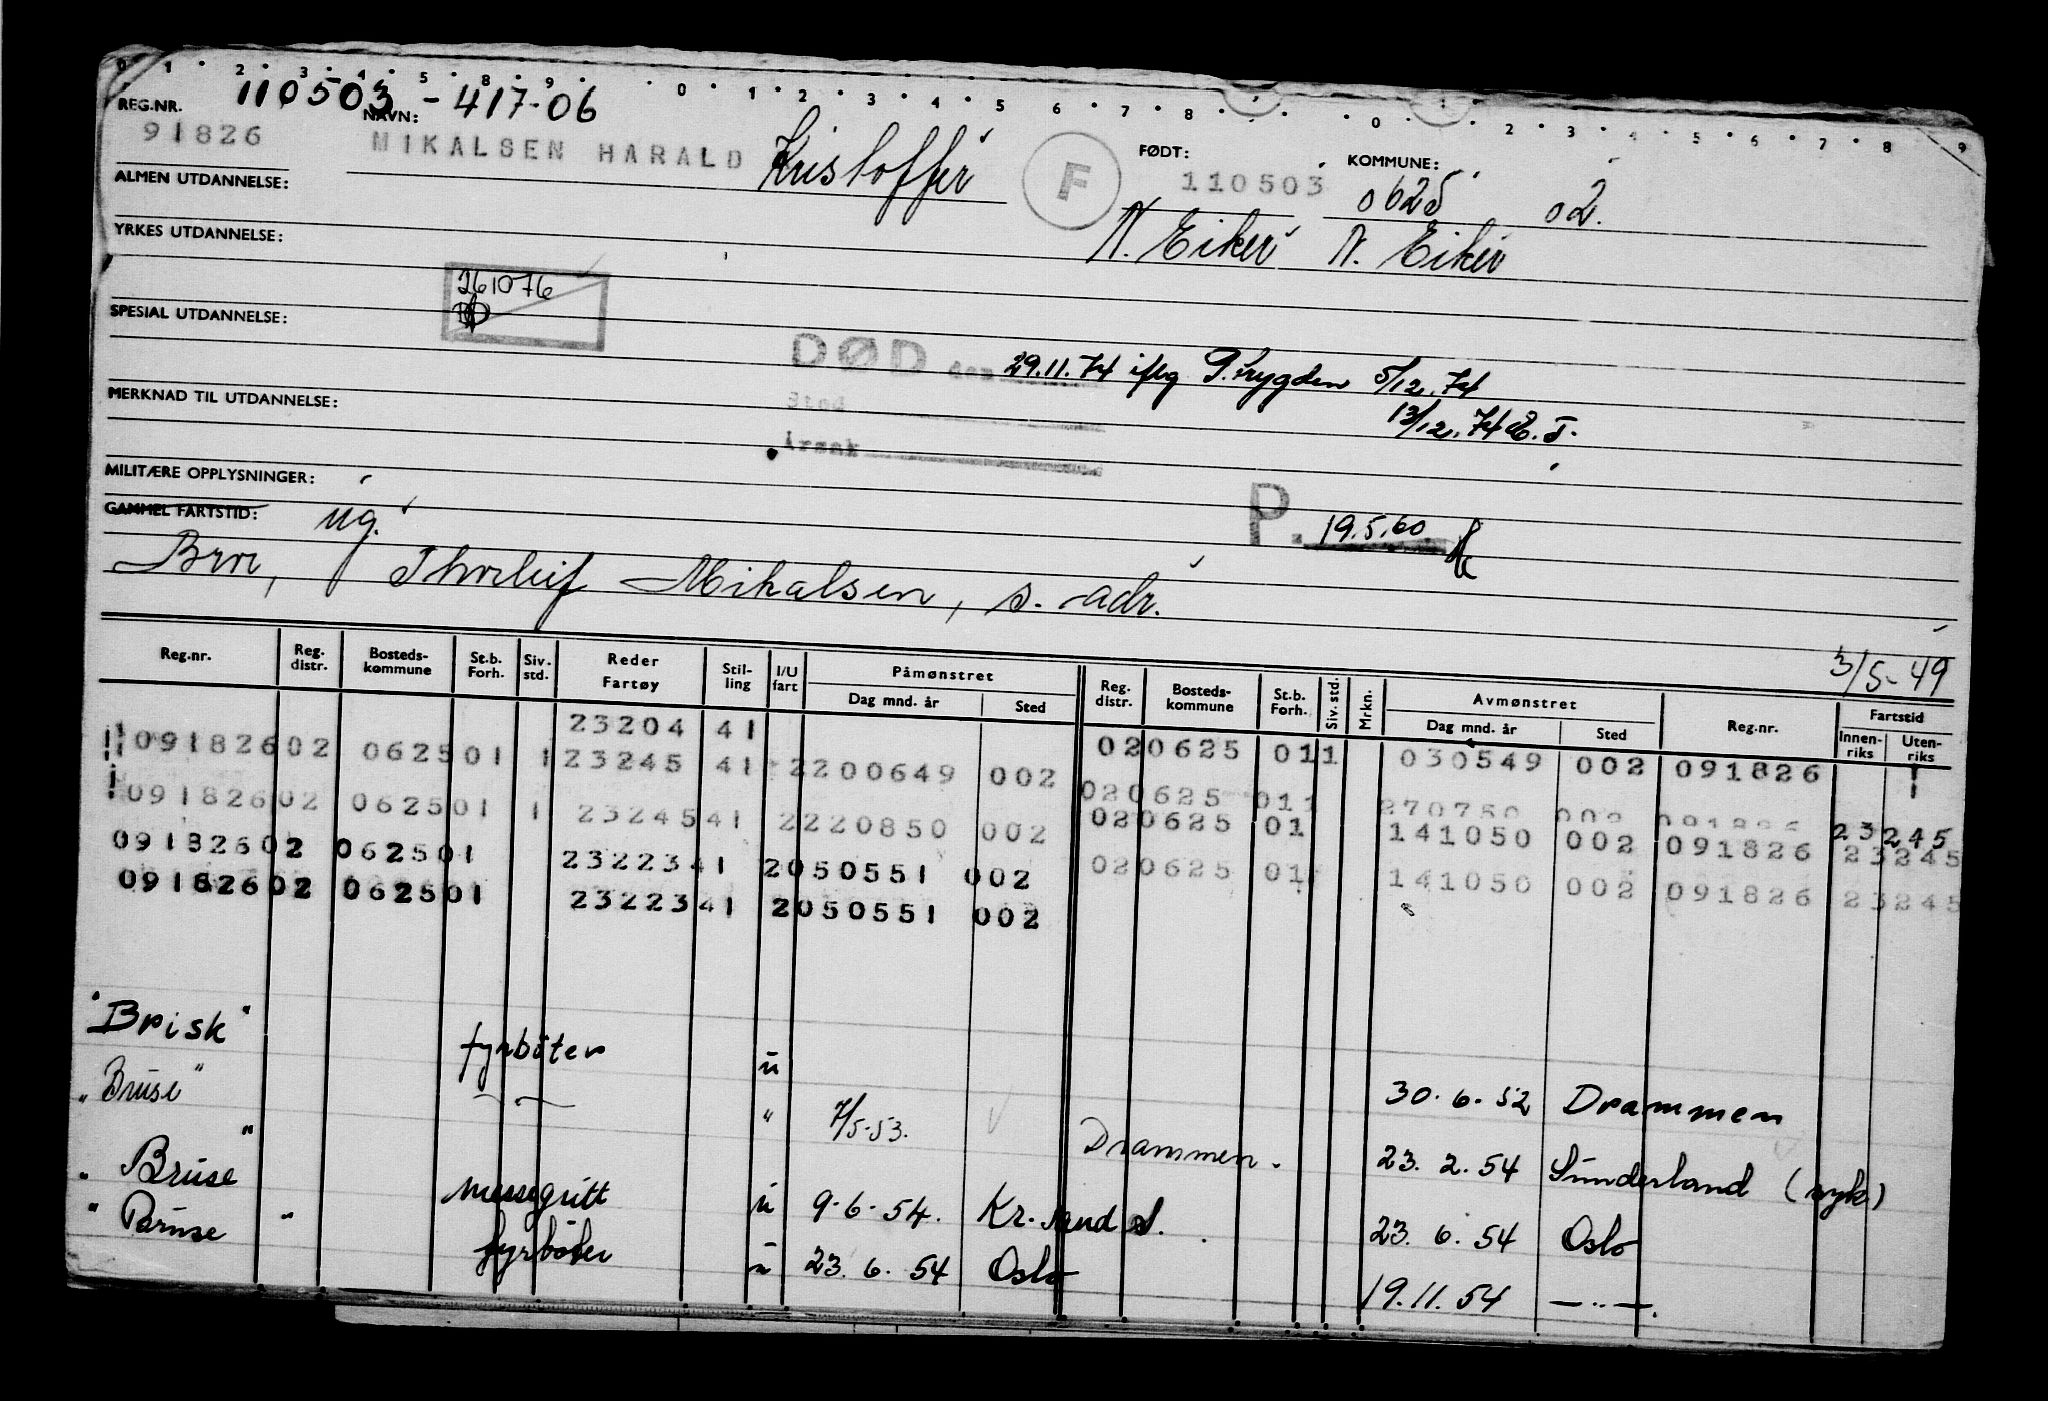 0 1 2 3 4 5 8 9 0 1 2 3 4 5 6 7 8 0 2 3 4 5 6 7 8 9
REG.NR. 110503-417-06
91826 NAVN: MIKALSEN HARALD Kristoffer F FØDT: 110503 KOMMUNE: 0625 02.
ALMEN UTDANNELSE:
N. Eiker N. Eiker
YRKES UTDANNELSE:
261076
SPESIAL UTDANNELSE:
DØD den 29.11.74 iflg P.trygden 5/12.74
Sted 13/12.74
MERKNAD TIL UTDANNELSE:
Årsak
MILITÆRE OPPLYSNINGER:
P. 19.5.60
GAMMEL FARTSTID: ug.
Bror, Thorleif Mikalsen, s. adr.
3/5-49
Reg.nr. Reg. distr. Bosteds-kommune St.b. Forh. Siv. std. Reder Fartøy Stil-ling I/U fart Påmønstret Dag mnd. år Sted Reg. distr. Bosteds-kommune St.b. Forh. Siv. std. Mrkn. Avmønstret Dag mnd. år Sted Reg.nr. Fartstid Innen-riks Uten-riks
23204 41 020625 011 030549 002 091826
09182602 062501 1 23245 41 2200649 002 020625 011 270750 002 091826 23245
09182602 062501 1 23245 41 2220850 002 020625 01 141050 002 091826 23245
09182602 062501 23223 41 2050551 002 020625 01 141050 002 091826 23245
09182602 062501 23223 41 2050551 002
"Brisk" fyrbøter u 30.6.52 Drammen
"Bruse" — " — " 7/5-53. Drammen. 23.2.54 Sunderland (syk)
"Bruse" messegutt u 9.6.54. Kr.sand S. 23.6.54 Oslo
"Bruse" fyrbøter u 23.6.54 Oslo 19.11.54 —"—.